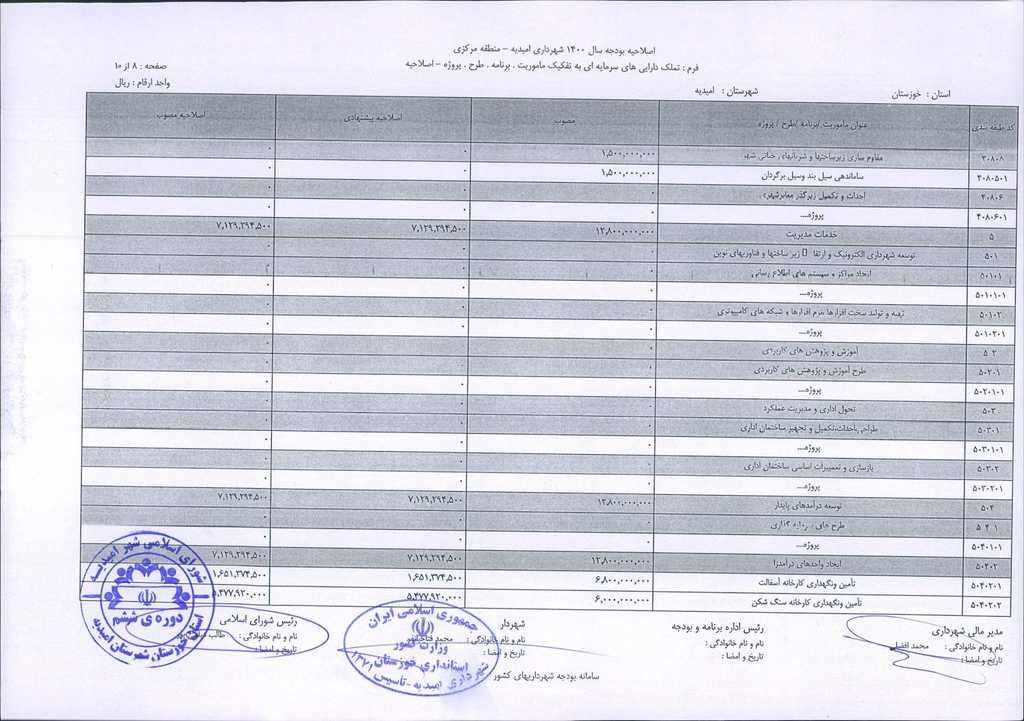 اصلاحیه بودجه سال ۱۴۰۰ شهرداری امیدیه - منطقه مرکزی
فرم : تملک دارایی های سرمایه ای به تفکیک ماموریت ، برنامه ، طرح ، پروژه - اصلاحیه
صفحه : ۸ از ۱۰
واحد ارقام : ریال
استان : خوزستان شهرستان : امیدیه
کد طبقه بندی عنوان ماموریت /برنامه /طرح / پروژه مصوب اصلاحیه پیشنهادی اصلاحیه مصوب
مقاوم سازی زیرساختها و شریانهای حیاتی شهر ۱,۵۰۰,۰۰۰,۰۰۰ ۰ ۰
۴۰۸۰۵۰۱ ساماندهی سیل بند وسیل برگردان ۱,۵۰۰,۰۰۰,۰۰۰ ۰ ۰
۴۰۸۰۶ احداث و تکمیل زیرگذر معابرشهری ۰ ۰ ۰
۴۰۸۰۶۰۱ پروژه... ۰ ۰ ۰
۵ خدمات مدیریت ۱۲,۸۰۰,۰۰۰,۰۰۰ ۷,۱۲۹,۲۹۴,۵۰۰ ۷,۱۲۹,۲۹۴,۵۰۰
۵۰۱ توسعه شهرداری الکترونیک و ارتقا زیر ساختها و فناوریهای نوین ۰ ۰ ۰
۵۰۱۰۱ ایجاد مراکز و سیستم های اطلاع رسانی ۰ ۰ ۰
۵۰۱۰۱۰۱ پروژه... ۰ ۰ ۰
۵۰۱۰۲ تهیه و تولید سخت افزارها نرم افزارها و شبکه های کامپیوتری ۰ ۰ ۰
۵۰۱۰۲۰۱ پروژه... ۰ ۰ ۰
۵۰۲ آموزش و پژوهش های کاربردی ۰ ۰ ۰
۵۰۲۰۱ طرح آموزش و پژوهش های کاربردی ۰ ۰ ۰
۵۰۲۰۱۰۱ پروژه... ۰ ۰ ۰
۵۰۳ تحول اداری و مدیریت عملکرد ۰ ۰ ۰
۵۰۳۰۱ طراحی،احداث،تکمیل و تجهیز ساختمان اداری ۰ ۰ ۰
۵۰۳۰۱۰۱ پروژه... ۰ ۰ ۰
۵۰۳۰۲ بازسازی و تعمییرات اساسی ساختمان اداری ۰ ۰ ۰
۵۰۳۰۲۰۱ پروژه... ۰ ۰ ۰
۵۰۴ توسعه درآمدهای پایدار ۱۲,۸۰۰,۰۰۰,۰۰۰ ۷,۱۲۹,۲۹۴,۵۰۰ ۷,۱۲۹,۲۹۴,۵۰۰
۵۰۴۰۱ طرح های سرمایه گذاری ۰ ۰ ۰
۵۰۴۰۱۰۱ پروژه... ۰ ۰ ۰
۵۰۴۰۲ ایجاد واحدهای درآمدزا ۱۲,۸۰۰,۰۰۰,۰۰۰ ۷,۱۲۹,۲۹۴,۵۰۰ ۷,۱۲۹,۲۹۴,۵۰۰
۵۰۴۰۲۰۱ تأمین ونگهداری کارخانه آسفالت ۶,۸۰۰,۰۰۰,۰۰۰ ۱,۶۵۱,۳۷۴,۵۰۰ ۱,۶۵۱,۳۷۴,۵۰۰
۵۰۴۰۲۰۲ تأمین ونگهداری کارخانه سنگ شکن ۶,۰۰۰,۰۰۰,۰۰۰ ۵,۴۷۷,۹۲۰,۰۰۰ ۵,۴۷۷,۹۲۰,۰۰۰
مدیر مالی شهرداری رئیس اداره برنامه و بودجه شهردار رئیس شورای اسلامی
نام و نام خانوادگی : محمد افضلی نام و نام خانوادگی : نام و نام خانوادگی : محمد نام و نام خانوادگی : طالب
تاریخ و امضا : تاریخ و امضا : تاریخ و امضا : تاریخ و امضا :
سامانه بودجه شهرداریهای کشور
جمهوری اسلامی ایران
وزارت کشور
استانداری خوزستان
شهرداری امیدیه - تأسیس ۱۳۷۱
شورای اسلامی شهر امیدیه
دوره ی ششم
استان خوزستان شهرستان امیدیه